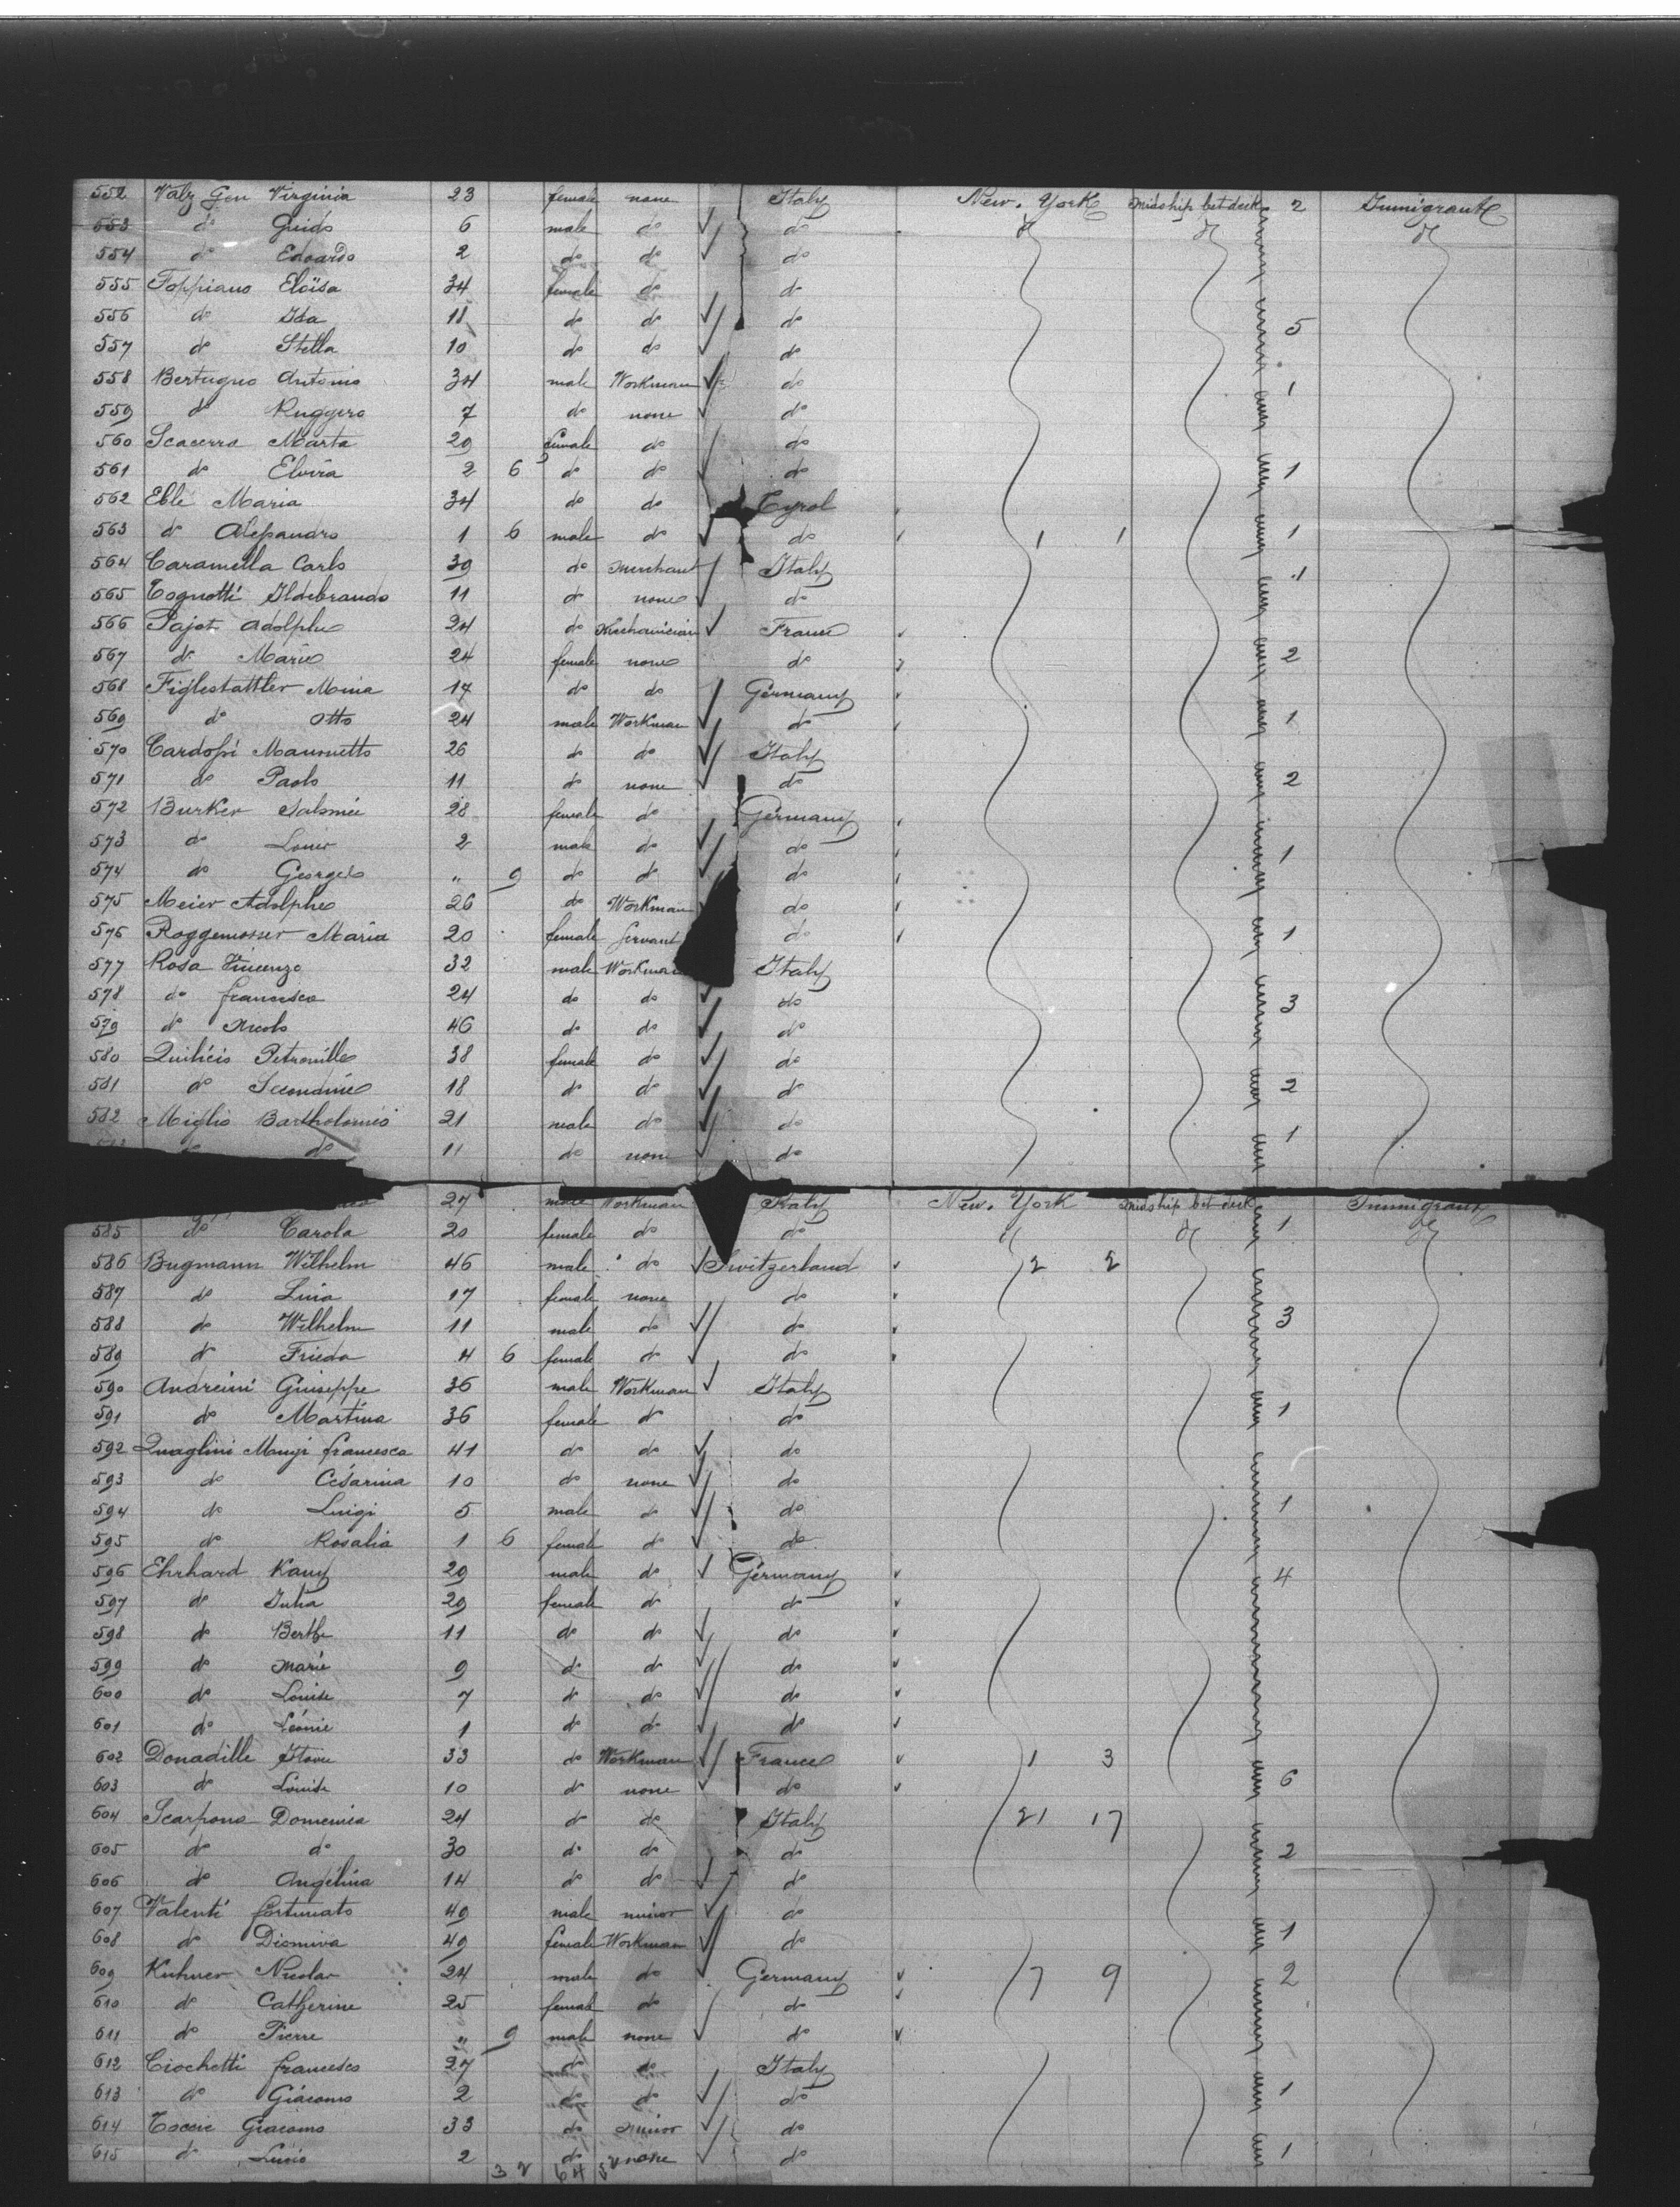 552 Valz Gen Virginia 23 female none Italy New. York midship bet deck 2 Immigrant
553 do Guido 6 male do do
554 do Edoardo 2 do do do
555 Foppiano Eloïsa 34 female do do
556 do Ida 11 do do do 5
557 do Stella 10 do do do
558 Bertugno Antonio 34 male Workman do 1
559 do Ruggero 7 do none do
560 Scacerro Marta 29 female do do
561 do Elvira 2 6 do do do 1
562 Eble Maria 34 do do Tyrol
563 do Alessandro 1 6 male do do 1 1 1
564 Caramella Carlo 39 do merchant Italy 1
565 Tognotti Ildebrando 11 do none do
566 Pajot Adolphe 24 do Mechanician France
567 do Marie 24 female none do 2
568 Figlestattler Mina 17 do do Germany
569 do Otto 24 male Workman do 1
570 Cardossi Maumetto 26 do do Italy
571 do Paolo 11 do none do 2
572 Burker Salomée 28 female do Germany
573 do Louis 2 male do do 1
574 do Georges " 9 do do do
575 Meier Adolphe 26 do Workman do
576 Roggemosser Maria 20 female Servant do 1
577 Rosa Vincenzo 32 male Workman Italy
578 do francesco 24 do do do 3
579 do Nicolo 46 do do do
580 Quilicis Petronille 38 female do do
581 do Secondine 18 do do do 2
582 Miglio Bartholomeo 21 male do do 1
do do 11 do none do
27 male Workman Italy New. York midship bet deck 1 Immigrant
585 do Carola 20 female do do
586 Bugmann Wilhelm 46 male do Switzerland 2 2
587 do Lina 17 female none do
588 do Wilhelm 11 male do do 3
589 do Frieda 4 6 female do do
590 Andreini Giuseppe 36 male Workman Italy
591 do Martina 36 female do do 1
592 Quaglini Mungi francesca 41 do do do
593 do Césarina 10 do none do
594 do Luigi 5 male do do 1
595 do Rosalia 1 6 female do do
596 Ehrhard Kany 29 male do Germany 4
597 do Julia 29 female do do
598 do Berthe 11 do do do
599 do Marie 9 do do do
600 do Louise 7 do do do
601 do Léonie 1 do do do
602 Donadille 33 do Workman France 1 3
603 do Louise 10 do none do 6
604 Scarpono Domenica 24 do do Italy 21 17
605 do do 30 do do do 2
606 do Angélina 14 do do do
607 Valenti fortunato 49 male minor do
608 do Diomira 49 female Workman do 1
609 Kuhner Nicolas 24 male do Germany 7 9 2
610 do Catherine 25 female do do
611 do Pierre " 9 male none do
612 Ciochetti francesco 27 do do Italy
613 do Giacomo 2 do do do 1
614 Giacomo 33 do minor do
615 do Lucio 2 do none do 1
32 64